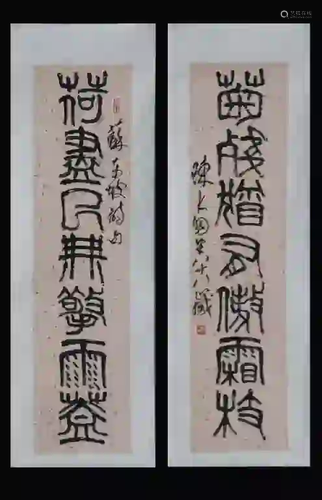 荷盡已無擎雨蓋
蘇東坡詩句
菊殘猶有傲霜枝
陳大羽八十八歲